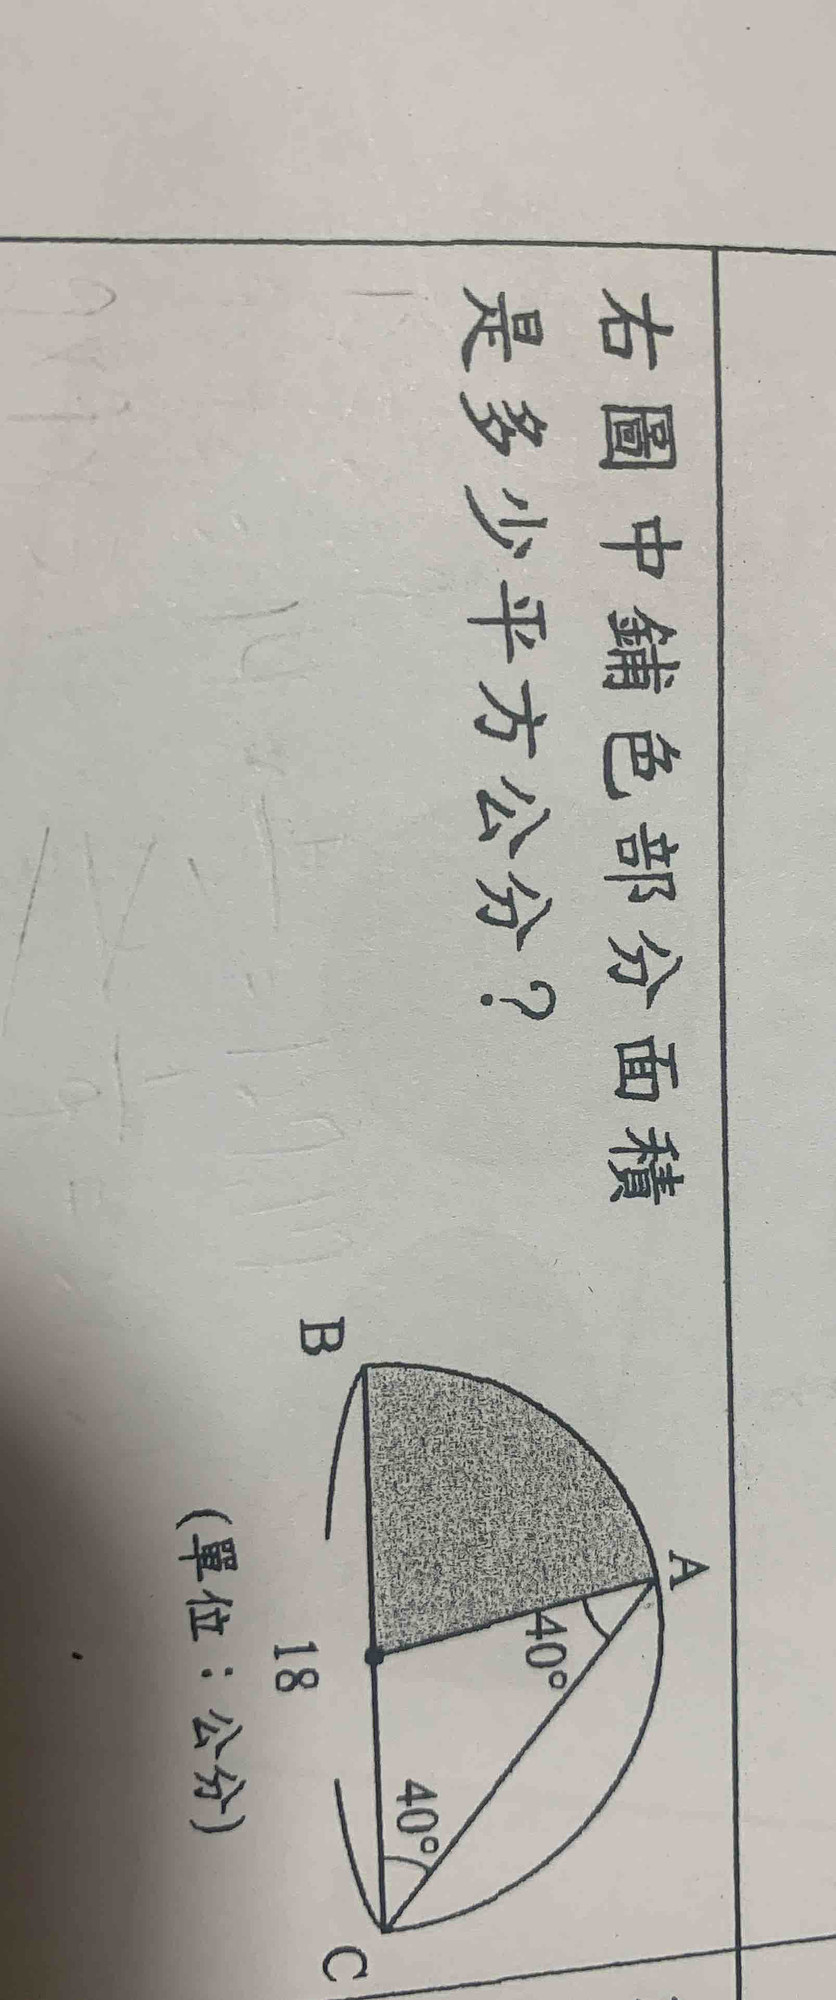 右圖中鋪色部分面積
是多少平方公分？
A
40°
40°
B
C
18
(單位：公分)